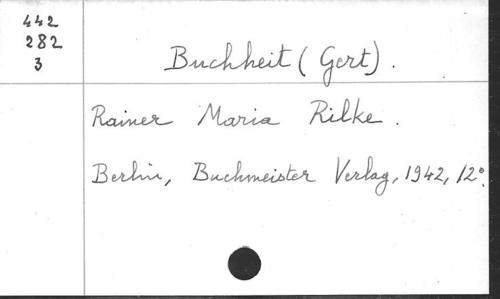 442
282
3
Buchheit (Gert).
Rainer Maria Rilke.
Berlin, Buchmeister Verlag, 1942, 12°.